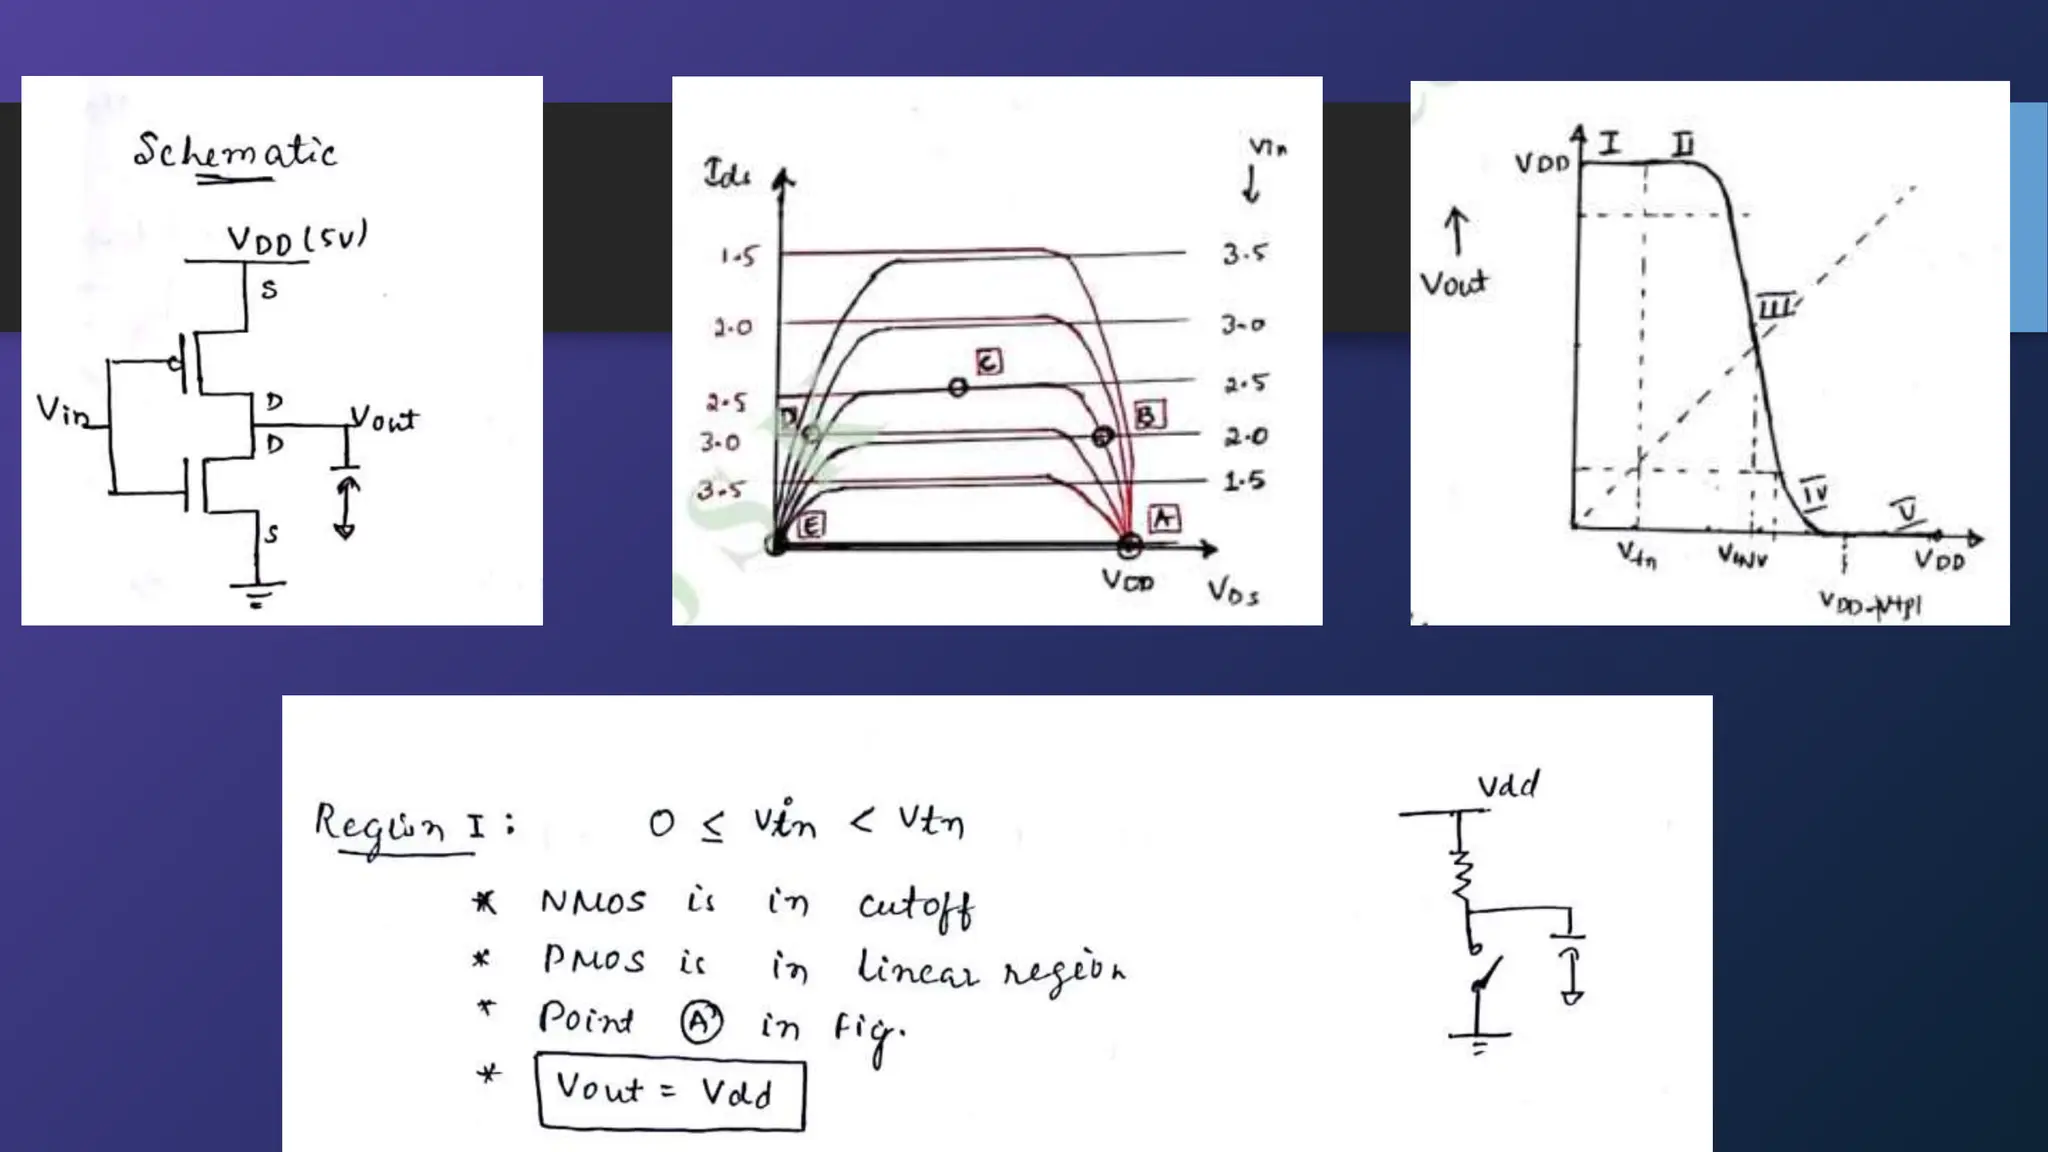 Schematic
VDD (5V)
S
Vin
D
Vout
D
S
Ids
Vin
1.5
3.5
2.0
3.0
C
2.5
2.5
D
B
3.0
2.0
3.5
1.5
E
A
VDD
VDS
VDD
I
II
Vout
III
IV
V
Vtn
VINV
VDD
VDD-|Vtp|
Region I : 0 ≤ Vin < Vtn
* NMOS is in cutoff
* PMOS is in linear region
* Point A in Fig.
* Vout = Vdd
Vdd